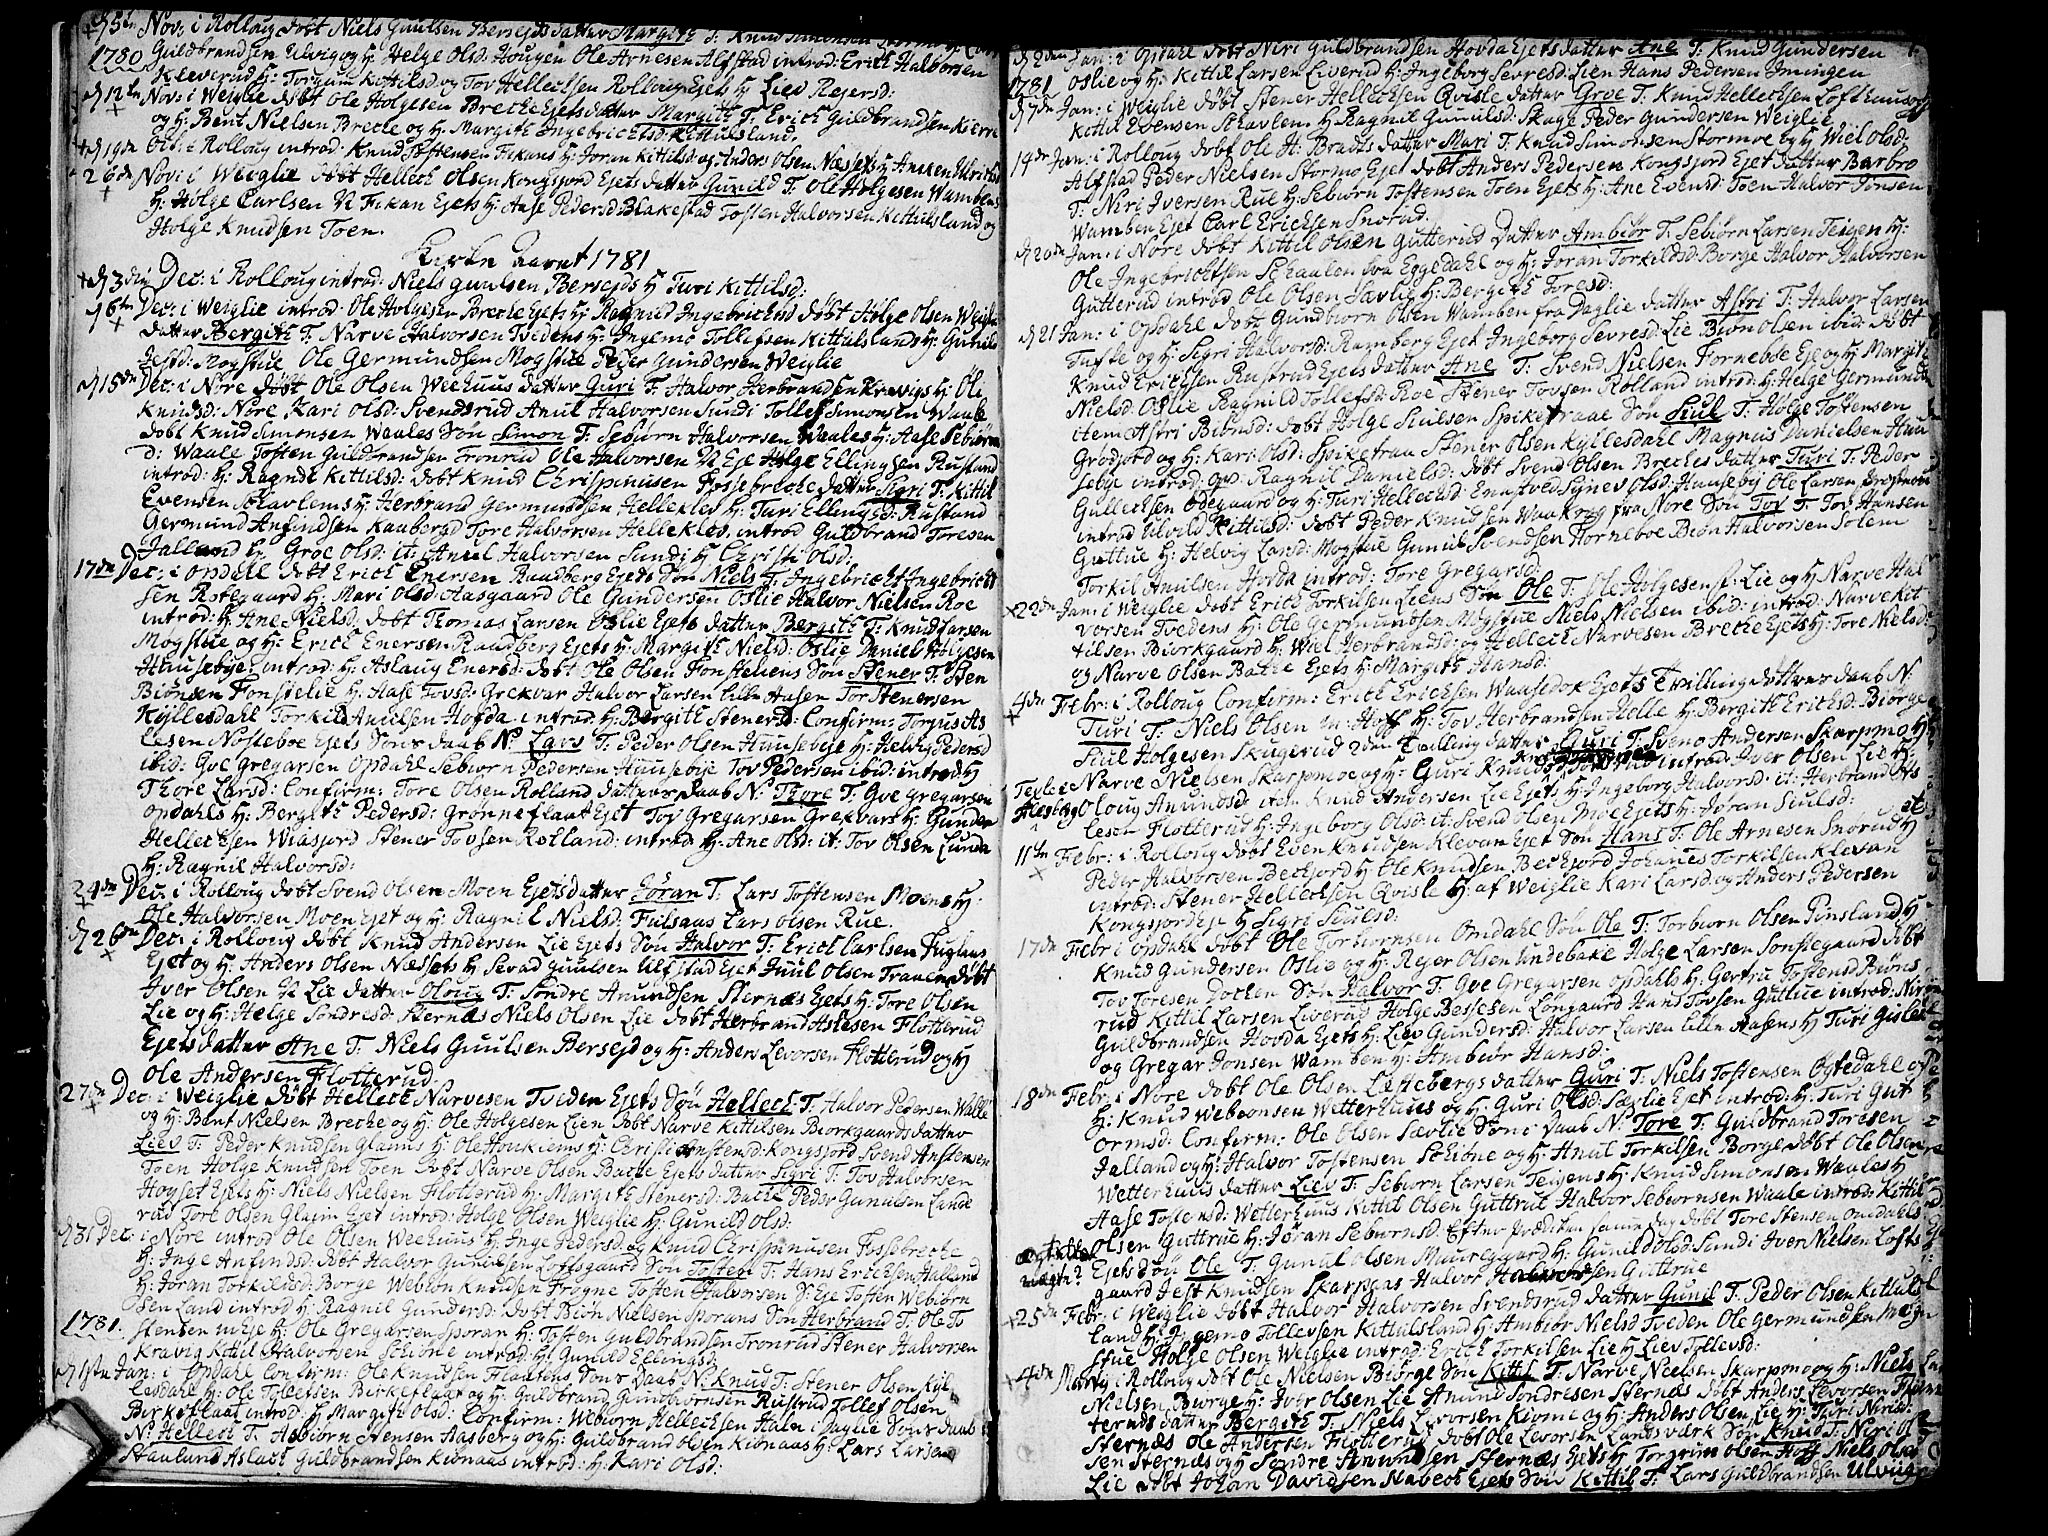 d 5te Nov: i Rolloug døbt Niels Guulsen Bersejds datter Margith T: Knud Simonsen Stormo H:
1780 Guldbrandsen Ulvig og H: Helge Olsd: Hougen Ole Arnesen Alfstad introd: Erich Halvorsen
Kleverud H: Torgun Kittilsd og Tov Hellechsen Rolloug Ejets H: Liev Rejersd:
d 12te Nov: i Weiglie døbt Ole Holgesen Breche Ejets datter Margith T: Erich Guldbrandsen Kierre
og H: Bent Nielsen Breche og H: Margith Ingebrichtsd: Kittulsland.
d 19de Old: i Rolloug introd: Knud Tostensen Fekans H: Joran Kittilsd: og Anders Olsen Næsset H: Anne
26de Nov: i Weiglie døbt Hellech Olsen Kongsjord Ejets datter Gunild T: Ole Holgesen Wambens
H: Holge Carlsen N Fikan Ejets H: Aase Pedersd: Blakestad Tosten Halvorsen Kittulsland og
Holge Knudsen Toen.
Kirke Aaret 1781
d 3die Dec: i Rolloug introd: Niels Guulsen Bersejds H Turi Kittilsd:
d 6te Dec: i Weiglie introd: Ole Holgesen Breche Ejets H: Ragnild Ingebrichtsd døbt Holge Olsen Weiglie
datter Bergith T: Narve Halvorsen Tvedens H: Ingemo Tollefsen Kittulslands H: Gunild
Jestsd: Mogstue Ole Germundsen Mogstue Peder Gundersen Weiglie
d 15de Dec: i Nore døbt Ole Olsen Weehuus datter Guri T: Halvor Herbrandsen Kravigs H: Oli
Knudsd: Nore Kari Olsd: Svendsrud Anul Halvorsen Sundi Tollef Simonsen Waale
døbt Knud Simonsen Waales Søn Simon T: Sebiørn Halvorsen Waales H: Aase Sebiørns
d: Waale Tosten Guldbrandsen Tronrud Ole Halvorsen N Eje Holge Ellingsen Rustand
introd: H: Ragndi Kittilsd: døbt Knud Chrispinusen Fossebreche datter Sigri T: Kittil
Evensen Skavlems H: Herbrand Germundsen Helleklev H: Turi Ellingsd: Rustand
Germund Anfindsen Kaaberud Tore Halvorsen Helleklev, introd Guldbrand Toresen
Jalland H: Groe Olsd: it: Anul Halvorsen Sundi H Christi Olsd:
17de Dec: i Opdahl døbt Erich Enersen Raadberg Ejets Søn Niels T: Ingebricht Ingebricht
sen Rotegaard H: Mari Olsd: Aasgaard Ole Gundersen Oslie Halvor Nielsen Roe
introd: H: Ane Nielsd: døbt Thomas Larsen Oslie Ejets datter Bergith T: Knud Larsen
Mogstue og H: Erich Enersen Raadberg Ejets H: Margith Nielsd: Oslie Daniel Holgesen
Huusebye, introd: H: Aslaug Enersd: døbt Ole Olsen Fonsteliens Søn Stener T: Sten
Biønsen Fonstelie H: Aase Tovsd: Grekvar Halvor Larsen Lille Aasen Tor Stenersen
Kyllesdahl Torkild Anulsen Hovda, introd: H: Bergith Stenersd: Confirm: Torjus As
lesen Nosteboe Ejets Søn daab N: Lars T: Peder Olsen Huusebye H: Helvig Pedersd
ibid: Gve Gregarsen Opdahl Sebiørn Pedersen Huusebye Tov Pedersen ibid: introd H
Thore Larsd: Confirm: Tore Olsen Rolland datter daab N: Thore T: Gve Gregarsen
Opdahls H: Bergith Pedersd: Grønneflaat Ejet Tov Gregarsen Grekvars H: Gunder
Hellechsen Wiigsjord Stener Tovsen Rolland: introd: H: Ane Olsd: it: Tov Olsen Lunde
H: Ragnil Halvorsd:
24de Dec: i Rolloug døbt Svend Olsen Moen Ejets datter Jøran T: Lars Tostensen Moens H:
Ole Halvorsen Moen Ejet og H: Ragnil Nielsd: Fulsaas Lars Olsen Rue.
d 26de Dec: i Rolloug døbt Knud Andersen Lie Ejets Søn Halvor T: Erich Carlsen Fuglaas
Ejet og H: Anders Olsen Næssets H: Sevad Guulsen Alfstad Ejet Juul Olsen Traaen døbt
Iver Olsen N Lie datter Oloug T: Søndre Anundsen Sternæs Ejets H: Tore Olsen
Lie og H: Helge Sondresd: Sternæs Niels Olsen Lie døbt Herbrand Aslesen Flotterud
Ejets datter Ane T: Niels Guulsen Bersejd og H: Anders Levorsen Flotterud og H
Ole Andersen Flotterud.
27de Dec: i Weiglie døbt Hellech Narvesen Tveden Ejets Søn Hellech T: Halvor Pedersen Walle
og H: Bent Nielsen Breche og H: Ole Holgesen Lien døbt Narve Kittilsen Biorkgaards datter
Liev T: Peder Knudsen Glaims H: Ole Houkiems H: Christi Anstensd: Kongsjord Svend Anstensen
Toen Holge Knudsen Toen døbt Narve Olsen Batke Ejets datter Sigri T: Tov Halvorsen
Hoyset Ejets H: Niels Nielsen Flotterud H: Margith Stenersd: Batke Peder Gunulsen Lande
rud Tore Olsen Glaim Ejet introd: Holge Olsen Weiglie H: Gunild Olsd:
d 31 Dec: i Nore introd Ole Olsen Weehuus H: Inge Pedersd: og Knud Chrispinusen Fossebreche
H: Inge Anfindsd: døbt Halvor Gunulsen Loftsgaard Søn Tosten T: Hans Erichsen Halland
H: Joran Torkildsd: Borge Webiørn Knudsen Frogne Tosten Halvorsen N: Eje Tosten Webiørn
sen Land introd H: Ragnil Gundersd: døbt Biøn Nielsen Sporans Søn Herbrand T: Ole To
1781. stensen N Eje H: Ole Gregarsen Sporan H: Tosten Guldbrandsen Tronrud Stener Halvorsen
Kravig Kittil Halvorsen Schiøne introd: H: Gunild Ellingsd:
d 1ste Jan: i Opdahl Confirm: Ole Knudsen Flaatens Søn daab N: Knud T: Stener Olsen Kyl
lesdahl H: Ole Tollefsen Birkeflaat og H: Guldbrand Gundbiørnsen Rustrud Tollef Olsen
Birkeflaat introd: H Margith Olsd: Confirm: Webiørn Hellechsen Halm i Daglie Søn daab
N: Hellech T: Asbiørn Stensen Aasberg og H: Guldbrand Olsen Kiønaas H: Lars Larsen
Staaland Aslach Guldbrandsen Kiønaas introd: H: Kari Olsd:
d 2den Jan: i Opdahl døbt Niri Guldbrandsen Hovda Ejets datter Ane T: Knud Gundersen
1781 Oslie og H: Kittil Larsen Liverud H: Ingeborg Sevresd: Lien Hans Pedersen Imingen
d 7de Jan: i Weiglie døbt Stener Hellechsen Qvisle datter Groe T: Knud Hellechsen Lofthuus og
Kittil Evensen Skavlem H: Ragnil Gunulsd: Skage Peder Gundersen Weiglie
14de Jan: i Rolloug døbt Ole H: Bradts datter Mari T: Knud Simonsen Stormoe og H: Wiel Olsd:
Alfstad Peder Nielsen Stormo Ejet døbt Anders Pedersen Kongsjord Ejet datter Barbro
T: Niri Iversen Rue H: Sebiørn Tostensen Toen Ejets H: Ane Evensd: Toen Halvor Jonsen
Wamben Ejet Carl Erichsen Snorud.
d 20de Jan: i Nore døbt Kittil Olsen Gutterud datter Ambiør T: Sebiørn Larsen Teigen H:
Ole Ingebrichtsen Skaalen fra Eggedahl og H: Joran Torkildsd: Borge Halvor Halvorsen
Gutterud introd Ole Olsen Sævlie H: Bergith Toresd:
d 21 Jan: i Opdahl døbt Gundbiørn Olsen Wamben fra Daglie datter Astri T: Halvor Larsen
Tufte og H: Sigri Halvorsd: Ramberg Ejet Ingeborg Sevresd: Lie Biøn Olsen ibid: døbt
Knud Erichsen Rustrud Ejets datter Ane T: Svend Nielsen Torneboe Eje og H: Margith
Nielsd: Oslie Ragnild Tollefsd: Roe Stener Tovsen Rolland introd: H: Helge Germunds
item Astri Biønsd: døbt Holge Siulsen Spiketraae Søn Siul T: Holge Tostensen
Grodjord og H: Kari Olsd: Spiketraa Stener Olsen Kyllesdahl Magnus Danielsen Huu
sebye introd: qv: Ragnil Danielsd: døbt Svend Olsen Breches datter Turi T: Peder
Gullechsen Ødegaard og H: Turi Hellechsd: Enestved Synev Olsd: Hauseby Ole Larsen Frostmou
introd Ulvild Kittilsd: døbt Peder Knudsen Waakrog fra Nore Søn Tov T: Tov Hansen
Guttue H: Helvig Larsd: Mogstue Gunul Svendsen Torneboe Biøn Halvorsen Solem
Torkil Anulsen Hovda introd: Tore Gregarsd:
22de Jan: i Weiglie døbt Erich Torkilsen Liens Søn Ole T: Ole Holgesen St: Lie og H Narve Hal
vorsen Tvedens H: Ole Germundsen Mogstue Niels Nielsen ibid: introd: Narve Kit
tilsen Biorkgaard H: Wiel Herbrandsd: og Hellech Narvesen Breche Ejets H: Tore Nielsd:
og Narve Olsen Batke Ejets H: Margith Hansd:
4de Febr: i Rolloug Confirm: Erich Erichsen Waasedok Ejets Tvilling døttrer daab N:
Turi T: Niels Olsen M: Hoff H: Tov Herbrandsen Helle H: Bergith Erichsd: Biorge
Siul Holgesen Skugerud 2den Tvilling datter Guri T: Svend Andersen Skarpmo H:
Texler Narve Nielsen Skarpmoe og H: Guri Knudsd: introd: Iver Olsen Lie H:
Flesberg Oloug Anundsd: item Knud Andersen Lie Ejets H: Ingeborg Halvorsd: it: Herbrand As
lesen Flotterud H: Ingeborg Olsd: it: Svend Olsen Moe Ejets H: Joran Siulsd:
11te Febr: i Rolloug døbt Even Knudsen Klevan Ejet Søn Hans T: Ole Arnesen Snorud H
Peder Halvorsen Bechjord H: Ole Knudsen Bechjord Johanes Torkilsen Klevan
introd: Stener Hellechsen Qvisle H: af Weiglie Kari Larsd: og Anders Pedersen
Kongsjord Eje H Sigri Siulsd:
17de Febr i Opdahl døbt Ole Torbiornsen Omdahl Søn Ole T: Torbiorn Olsen Tinsland H
Knud Gundersen Oslie og H: Rejer Olsen Undebake Holge Larsen Sonstegaard døbt
Tov Toresen Dochen Søn Halvor T: Gve Gregarsen Opdahls H: Gertru Tostensd Biøns
rud Kittil Larsen Liverud Holge Bessesen Longaard Hans Tovsen Guttue introd: Niri
Guldbrandsen Hovda Ejets H: Liev Gundersd: Halvor Larsen Lille Aasens H Turi Gislesd
og Gregar Jonsen Wamben H: Ambiør Hansd:
18de Febr: i Nore døbt Ole Olsen Lestebergs datter Guri T: Niels Tostensen Ogtedahl og
H: Knud Webiønsen Wetterhuus og H: Guri Olsd: Sævlie Ejet introd: H: Turi Gut
ormsd: Confirm: Ole Olsen Sævlie Søn i daab N: Tore T: Guldbrand Toresen
Jalland og H: Halvor Tostensen Schiøne og H: Anul Torkilsen Borge døbt Ole Olsen
Wetterhuus datter Liev T: Sebiørn Larsen Teigens H: Knud Simonsen Waales H
Aase Tostensd: Wetterhuus Kittil Olsen Guttrud Halvor Sebiørnsen Waale introd: Kittil
Olsen Guttrue H: Jøran Sebiørnsd: Efter Prædiken samme dag døbt Tore Stensen Omdahls
Ejets Søn Ole T: Gunul Olsen Muurgaard H: Gunild Olsd: Sundi Iver Nielsen Lofts
gaard Jest Knudsen Skarpaas Halvor Halvorsen Guttrue
25de Febr: i Weiglie døbt Halvor Halvorsen Svendsrud datter Gunil T: Peder Olsen Kittuls
land H: Ingemo Tollevsen Kittulsland H: Ambiør Nielsd Tveden Ole Germundsen Mog
stue Holge Olsen Weiglie introd: Erich Torkilsen Lie H Liev Tollevsd:
4de Marty i Rolloug døbt Ole Nielsen Biørge Søn Kittl T: Narve Nielsen Skarpmo og H: Niels
Nielsen Biørge H: Iver Olsen Lie Anund Sondresen Sternæs døbt Anders Levorsen Flot
teruds datter Bergith T: Niels Levorsen Kiome og H: Anders Olsen Lie H: Turi Nirisd:
Sternæs Ole Andersen Flotterud døbt Ole Levorsen Landsværk Søn Knud T: Niri Ol
sen Sternæs og H Sondre Anundsen Sternæs Ejets H Torgrim Olsen Hoff Niels Olsen
Lie døbt Johan Davidsen Nabech Ejets Søn Kittil T: Lars Guldbrandsen Ulviig